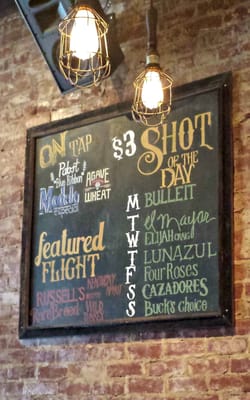 ON TAP
Pabst
Blue Ribbon
Modelo
especial
AGAVE
WHEAT
$3 SHOT
OF THE
DAY
M BULLEIT
T el Mayor
W ELIJAH CRAIG
T LUNAZUL
F Four Roses
S CAZADORES
S Buck's choice
featured
FLIGHT
RUSSELL'S
Rare Breed
KENTUCKY